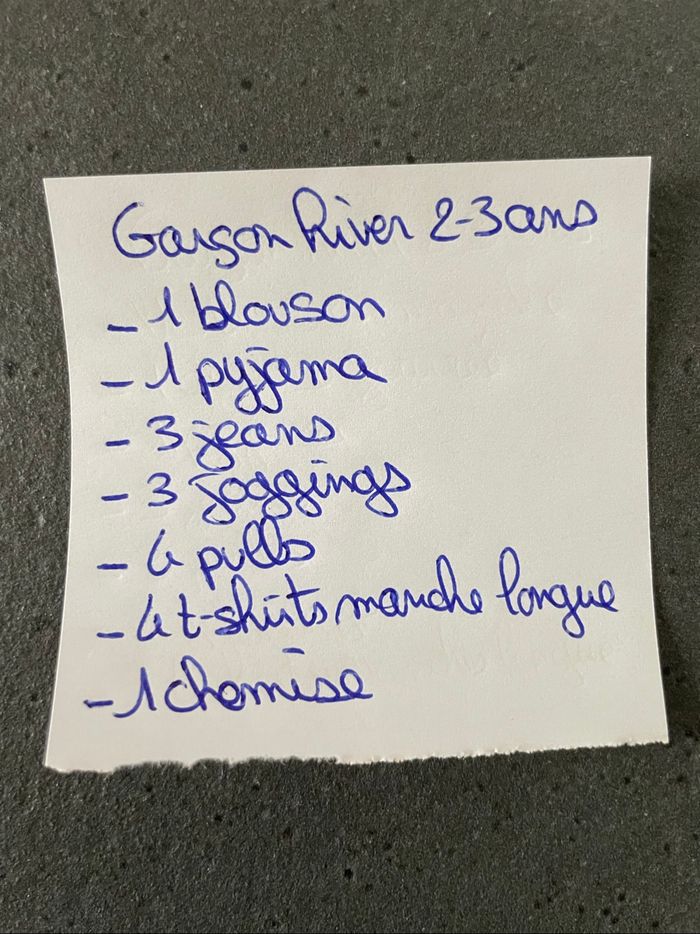 Garçon hiver 2-3 ans
- 1 blouson
- 1 pyjama
- 3 jeans
- 3 joggings
- 4 pulls
- 4 t-shirts manche longue
- 1 chemise